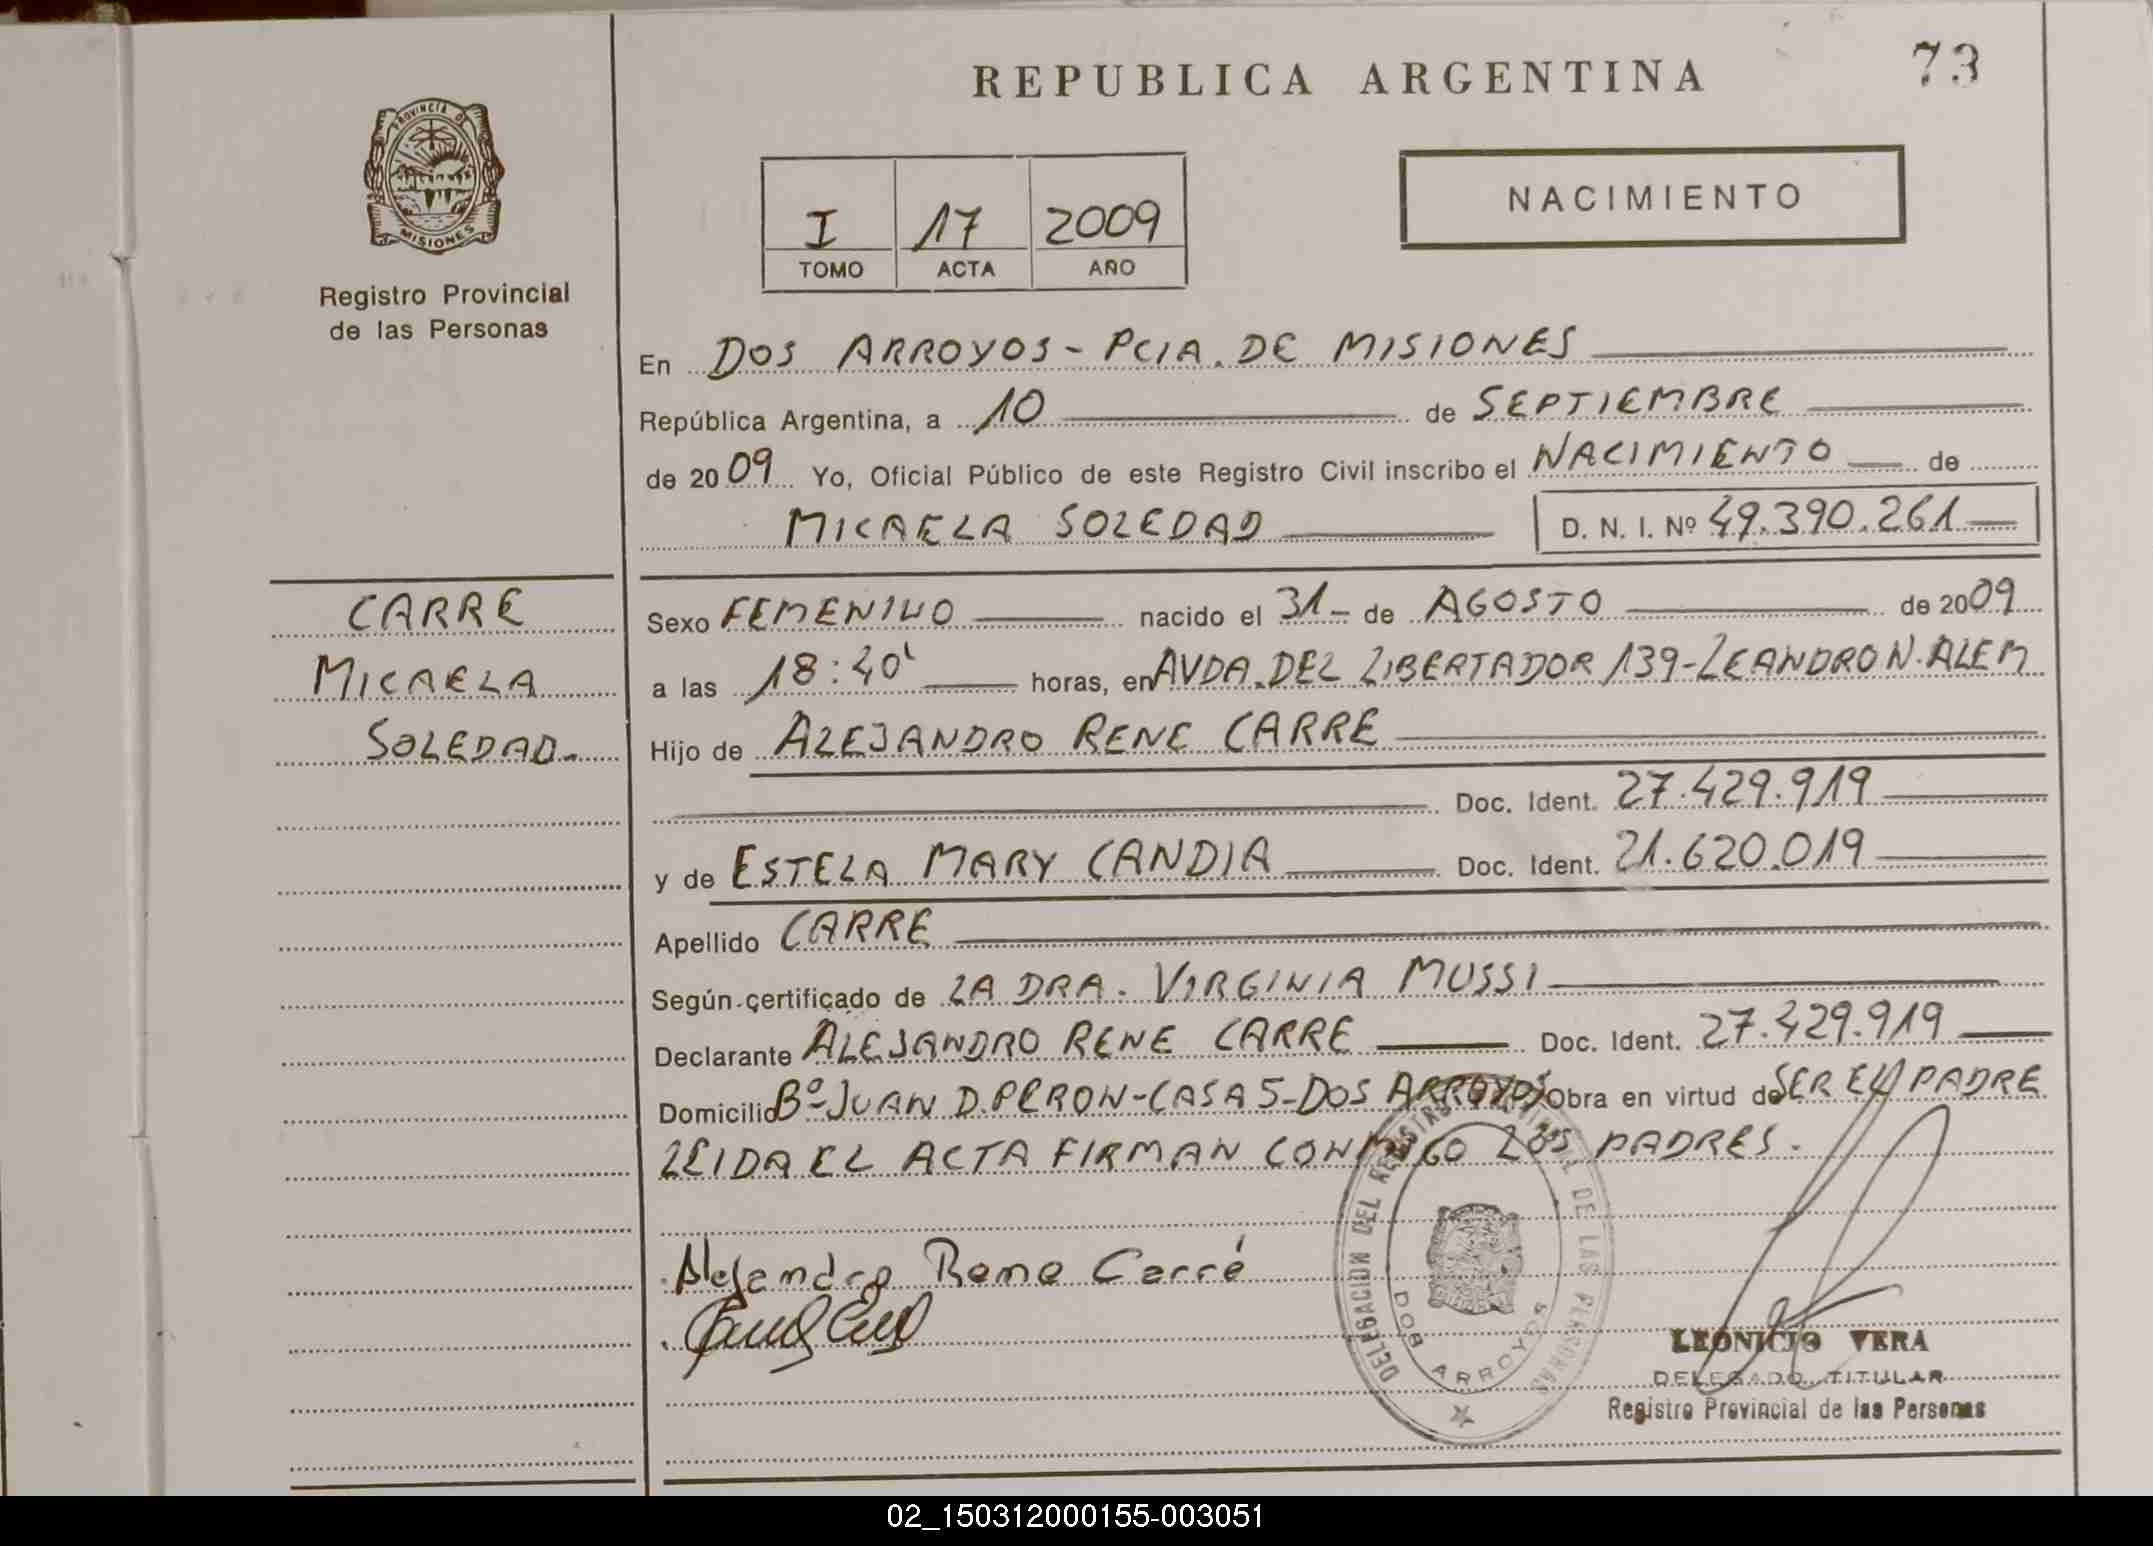 REPUBLICA ARGENTINA
73
PROVINCIA DE
MISIONES
Registro Provincial
de las Personas
I 17 2009
TOMO ACTA AÑO
NACIMIENTO
En DOS ARROYOS - PCIA. DE MISIONES
República Argentina, a 10 de SEPTIEMBRE
de 2009 Yo, Oficial Público de este Registro Civil inscribo el NACIMIENTO de
MICAELA SOLEDAD D. N. I. Nº 49.390.261
CARRE
MICAELA
SOLEDAD.
Sexo FEMENINO nacido el 31 - de AGOSTO de 2009
a las 18:40' horas, en AVDA. DEL LIBERTADOR 139 - LEANDRO N. ALEM
Hijo de ALEJANDRO RENE CARRE
Doc. Ident. 27.429.919
y de ESTELA MARY CANDIA Doc. Ident. 21.620.019
Apellido CARRE
Según certificado de LA DRA. VIRGINIA MUSSI
Declarante ALEJANDRO RENE CARRE Doc. Ident. 27.429.919
Domicilio Bº JUAN D. PERON - CASA 5 - DOS ARROYOS Obra en virtud de SER EL PADRE
LEIDA EL ACTA FIRMAN CONMIGO LOS PADRES.
Alejandro Rene Carré
DELEGACION DEL REGISTRO DE LAS PERSONAS
DOS ARROYOS
LEONICIO VERA
DELEGADO TITULAR
Registro Provincial de las Personas
02_150312000155-003051